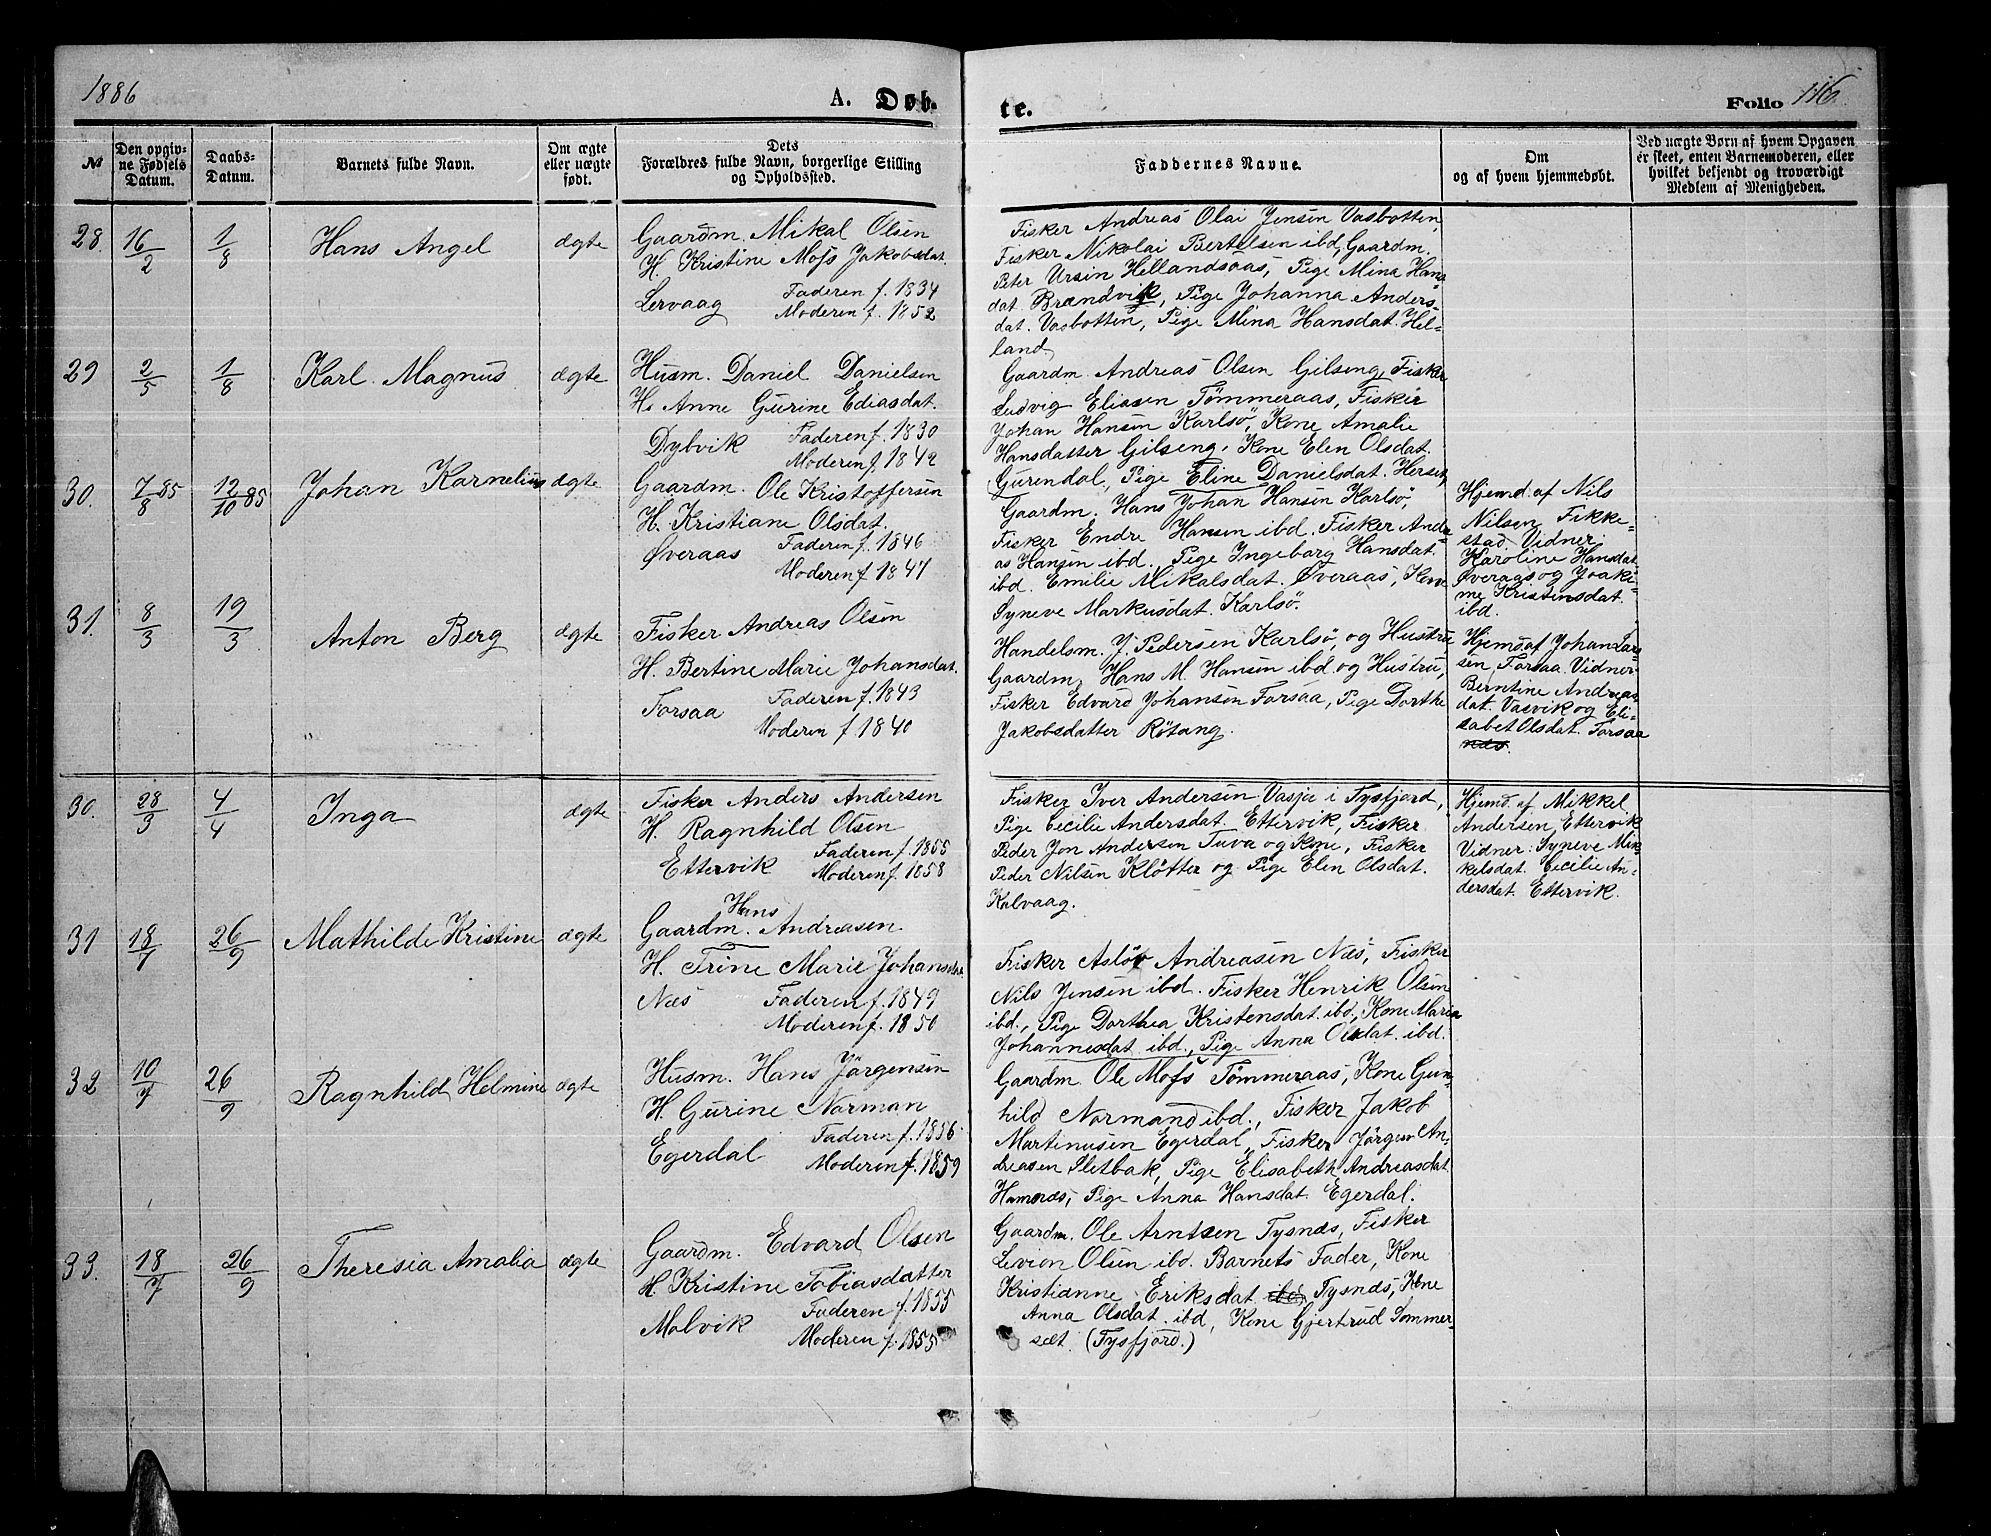 1886
A. Døb-
te.
Folio 116.
№
Den opgiv-
ne Fødsels
Datum.
Daabs-
Datum.
Barnets fulde Navn.
Om ægte
eller uægte
født.
Dets
Forældres fulde Navn, borgerlige Stilling
og Opholdssted.
Faddernes Navne.
Om
og af hvem hjemmedøbt.
Ved uægte Børn af hvem Opgaven
er skeet, enten Barnemoderen, eller
hvilket bekjendt og troværdigt
Medlem af Menigheden.
28. 16/2 1/8 Hans Angel ægte
Gaardm. Mikal Olsen
H. Kristine Mofs Jakobsdat.
Lervaag Faderen f. 1834
Moderen f. 1852
Fisker Andreas Olai Jensen Vasbotten,
Fisker Nikolai Bertelsen ibd, Gaardm.
Peter Ursin Hellandsaas, Pige Mina Hans
dat Brændvik, Pige Johanna Anders
dat. Vasbotten, Pige Mina Hansdat. Hel-
land
29 2/5 1/8 Karl Magnus ægte
Husm. Daniel Danielsen
H. Anne Gurine Ediasdat.
Dybvik Faderen f. 1830
Moderen f. 1842
Gaardm. Andreas Olsen Gilseng, Fisker
Ludvig Eliasen Tömmeraas, Fisker
Johan Hansen Karlsö, Kone Amalie
Hansdatter Gilseng, Kone Elen Olsdat.
Gurendal, Pige Eline Danielsdat. Herset,
30. 7/8 85 12/10 85 Johan Karnelius ægte
Gaardm. Ole Kristoffersen
H. Kristiane Olsdat.
Øveraas Faderen f. 1846
Moderen f 1847
Gaardm. Hans Johan Hansen Karlsö,
Fisker Endre Hansen ibd. Fisker Andre
as Hansen ibd., Pige Ingeborg Hansdat.
ibd. Emilie Mikalsdat. Øveraas, Kone
Syneve Markusdat. Karlsö.
Hjemd. af Nils
Nilsen Fikke=
stad. Vidner:
Karoline Hansdat
Øveraas og Joaki=
me Kristensdat.
ibd.
31. 8/3 19/3 Anton Berg ægte
Fisker Andreas Olsen
H. Bertine Marie Johansdat.
Forsaa Faderen f. 1843
Moderen f. 1840
Handelsm. J. Pedersen Karlsö, og Hustru
Gaardm. Hans M. Hansen ibd og Hustru,
Fisker Edvard Johansen Forsaa, Pige Dorthe
Jakobsdatter Rötang.
Hjemd. af Johan Lars
sen, Forsaa. Vidner
Berntine Andreas
dat. Vasvik og Eli-
sabet Olsdat. Forsaa
næs.
30. 28/3 4/4 Inga ægte
Fisker Anders Andersen
H. Ragnhild Olsen
Ettervik Faderen f. 1855
Moderen f. 1858
Fisker Iver Andersen Vasja i Tysfjord,
Pige Cecilie Andersdat. Ettervik, Fisker
Peder Jon Andersen Tuva og Kone, Fisker
Peder Nilsen Klötter og Pige Elen Olsdat.
Kalvaag.
Hjemd. af Mikkel
Andersen, Ettervik
Vidner: Syneve Mik
kelsdat. Cecilie An-
dersdat. Ettervik.
31 18/7 26/9 Mathilde Kristine ægte
Hans
Gaardm. Andreasen
H. Trine Marie Johansdat
Næs Faderen f. 1849
Moderen f. 1850
Fisker Aslöv Andreasen Næs, Fisker
Nils Jensen ibd. Fisker Henrik Olsen
ibd., Pige Dorthea Kristensdat. ibd, Kone Maria
Johannesdat. ibd., Pige Anna Olsdat. ibd.
32 10/7 26/9 Ragnhild Helmine ægte
Husm. Hans Jörgensen
H. Gurine Norman
Egerdal Faderen f. 1856
Moderen f. 1859
Gaardm. Ole Mofs Tömmeraas, Kone Gun-
hild Normand ibd., Fisker Jakob
Martinusen Egerdal, Fisker Jörgen An-
dreasen Sletbak, Pige Elisabeth Andreasdat
Hamnæs, Pige Anna Hansdat. Egerdal.
33. 18/7 26/9 Theresia Amalia ægte
Gaardm. Edvard Olsen
H. Kristine Tobiasdatter
Malvik Faderen f. 1855
Moderen f. 1855
Gaardm. Ole Arntsen Tysnæs, Fisker
Levion Olsen ibd. Barnets Fader, Kone
Kristianne Eriksdat. ibd, Tysnæs, Kone
Anna Olsdat. ibd, Kone Gjertrud Sommer-
sæt. (Tysfjord.)